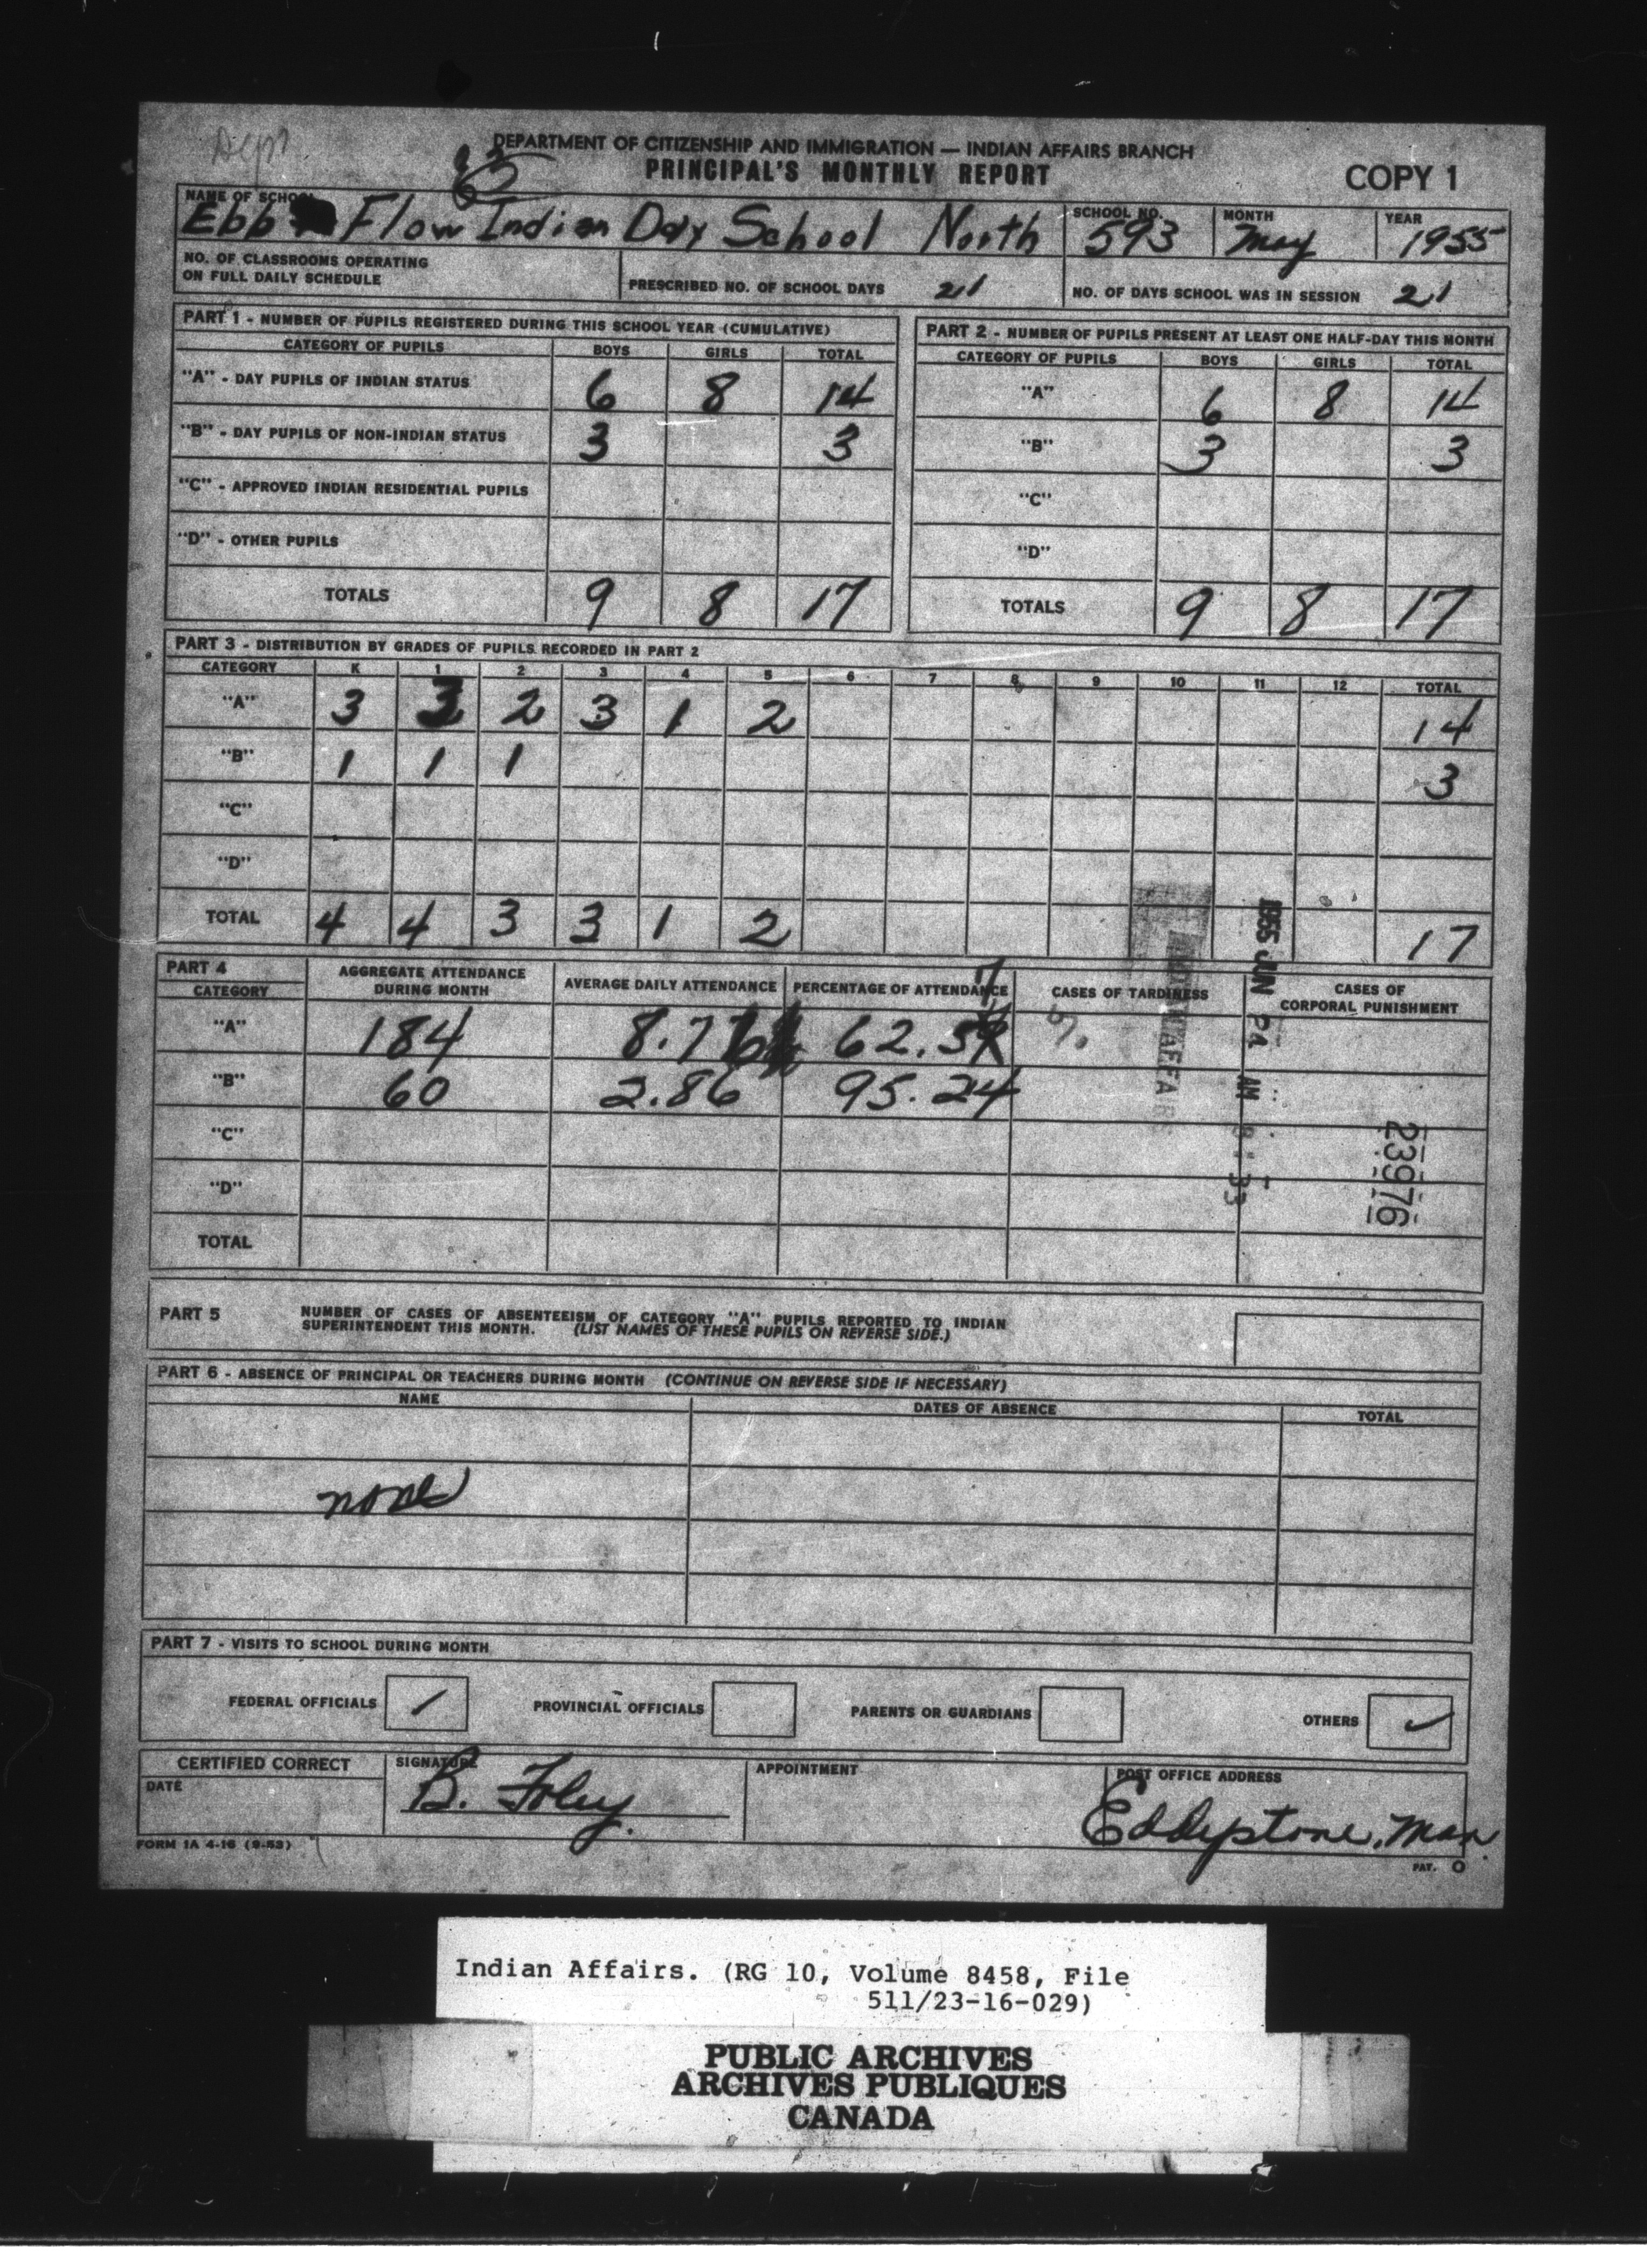 Dept
DEPARTMENT OF CITIZENSHIP AND IMMIGRATION — INDIAN AFFAIRS BRANCH
PRINCIPAL'S MONTHLY REPORT
COPY 1
NAME OF SCHOOL SCHOOL NO. MONTH YEAR
Ebb Flow Indian Day School North 593 May 1955
NO. OF CLASSROOMS OPERATING
ON FULL DAILY SCHEDULE PRESCRIBED NO. OF SCHOOL DAYS 21 NO. OF DAYS SCHOOL WAS IN SESSION 21
PART 1 - NUMBER OF PUPILS REGISTERED DURING THIS SCHOOL YEAR (CUMULATIVE)
CATEGORY OF PUPILS BOYS GIRLS TOTAL
"A" - DAY PUPILS OF INDIAN STATUS 6 8 14
"B" - DAY PUPILS OF NON-INDIAN STATUS 3 3
"C" - APPROVED INDIAN RESIDENTIAL PUPILS
"D" - OTHER PUPILS
TOTALS 9 8 17
PART 2 - NUMBER OF PUPILS PRESENT AT LEAST ONE HALF-DAY THIS MONTH
CATEGORY OF PUPILS BOYS GIRLS TOTAL
"A" 6 8 14
"B" 3 3
"C"
"D"
TOTALS 9 8 17
PART 3 - DISTRIBUTION BY GRADES OF PUPILS RECORDED IN PART 2
CATEGORY K 1 2 3 4 5 6 7 8 9 10 11 12 TOTAL
"A" 3 3 2 3 1 2 14
"B" 1 1 1 3
"C"
"D"
TOTAL 4 4 3 3 1 2 17
PART 4
CATEGORY
AGGREGATE ATTENDANCE
DURING MONTH
AVERAGE DAILY ATTENDANCE
PERCENTAGE OF ATTENDANCE
CASES OF TARDINESS
CASES OF
CORPORAL PUNISHMENT
"A" 184 8.76 62.57
"B" 60 2.86 95.24
"C"
"D"
TOTAL
1955 JUN AM
23976
PART 5 NUMBER OF CASES OF ABSENTEEISM OF CATEGORY "A" PUPILS REPORTED TO INDIAN
SUPERINTENDENT THIS MONTH. (LIST NAMES OF THESE PUPILS ON REVERSE SIDE.)
PART 6 - ABSENCE OF PRINCIPAL OR TEACHERS DURING MONTH (CONTINUE ON REVERSE SIDE IF NECESSARY)
NAME DATES OF ABSENCE TOTAL
none
PART 7 - VISITS TO SCHOOL DURING MONTH
FEDERAL OFFICIALS / PROVINCIAL OFFICIALS PARENTS OR GUARDIANS OTHERS ✓
CERTIFIED CORRECT SIGNATURE APPOINTMENT POST OFFICE ADDRESS
DATE B. Foley. Eddystone, Man.
FORM 1A 4-16 (9-53)
PAT. O
Indian Affairs. (RG 10, Volume 8458, File
511/23-16-029)
PUBLIC ARCHIVES
ARCHIVES PUBLIQUES
CANADA